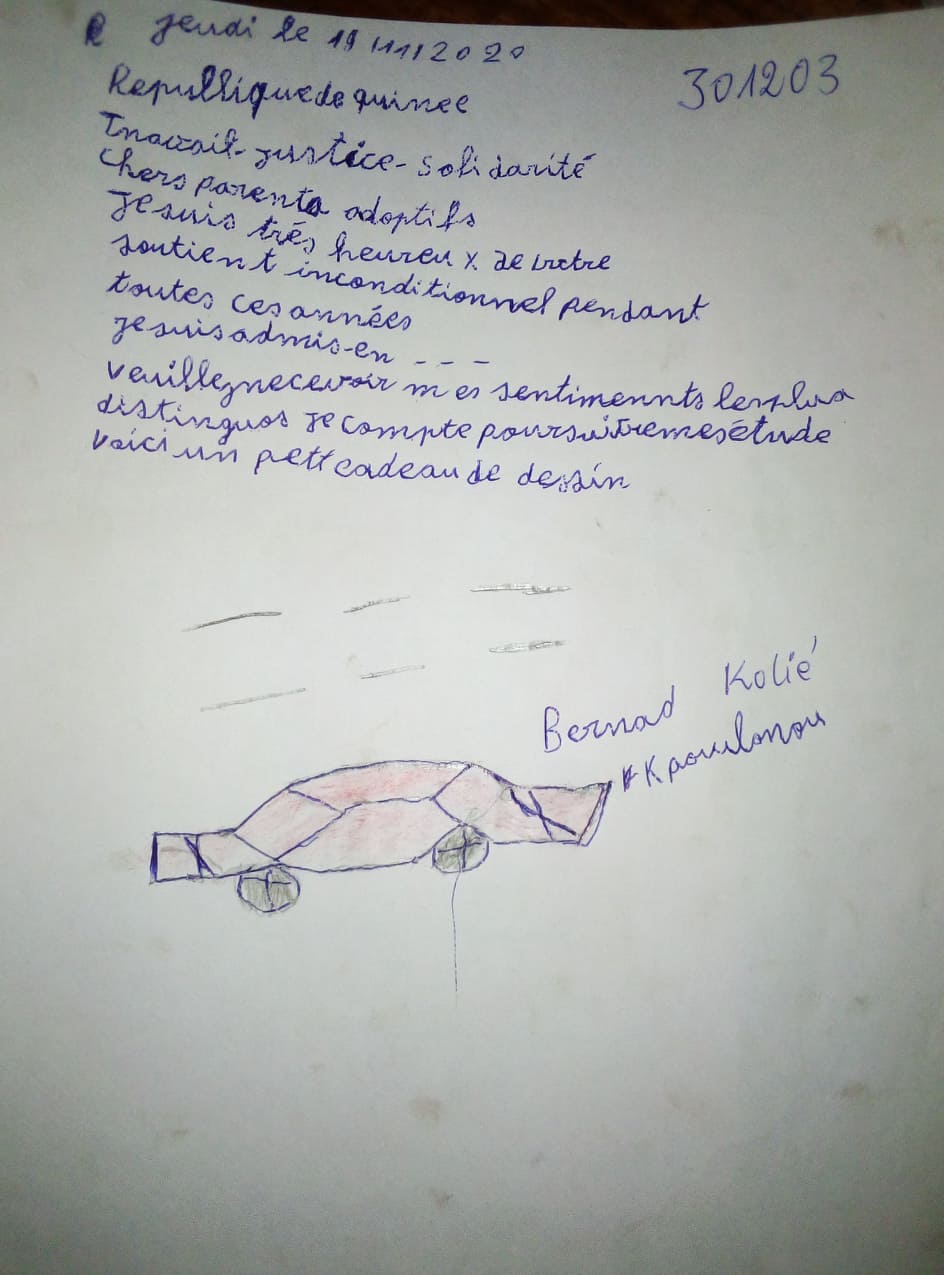 jeudi le 19/11/2020
301203
Republique de guinee
Travail-justice-solidarité
chers parents adoptifs
je suis très heureux de votre
soutient inconditionnel pendant
toutes ces années
je suis admis-en ---
veuillez recevoir mes sentiments les plus
distingués je compte poursuitre mes étude
voici un petit cadeau de dessin
Bernad Kolié
Kpoulonou